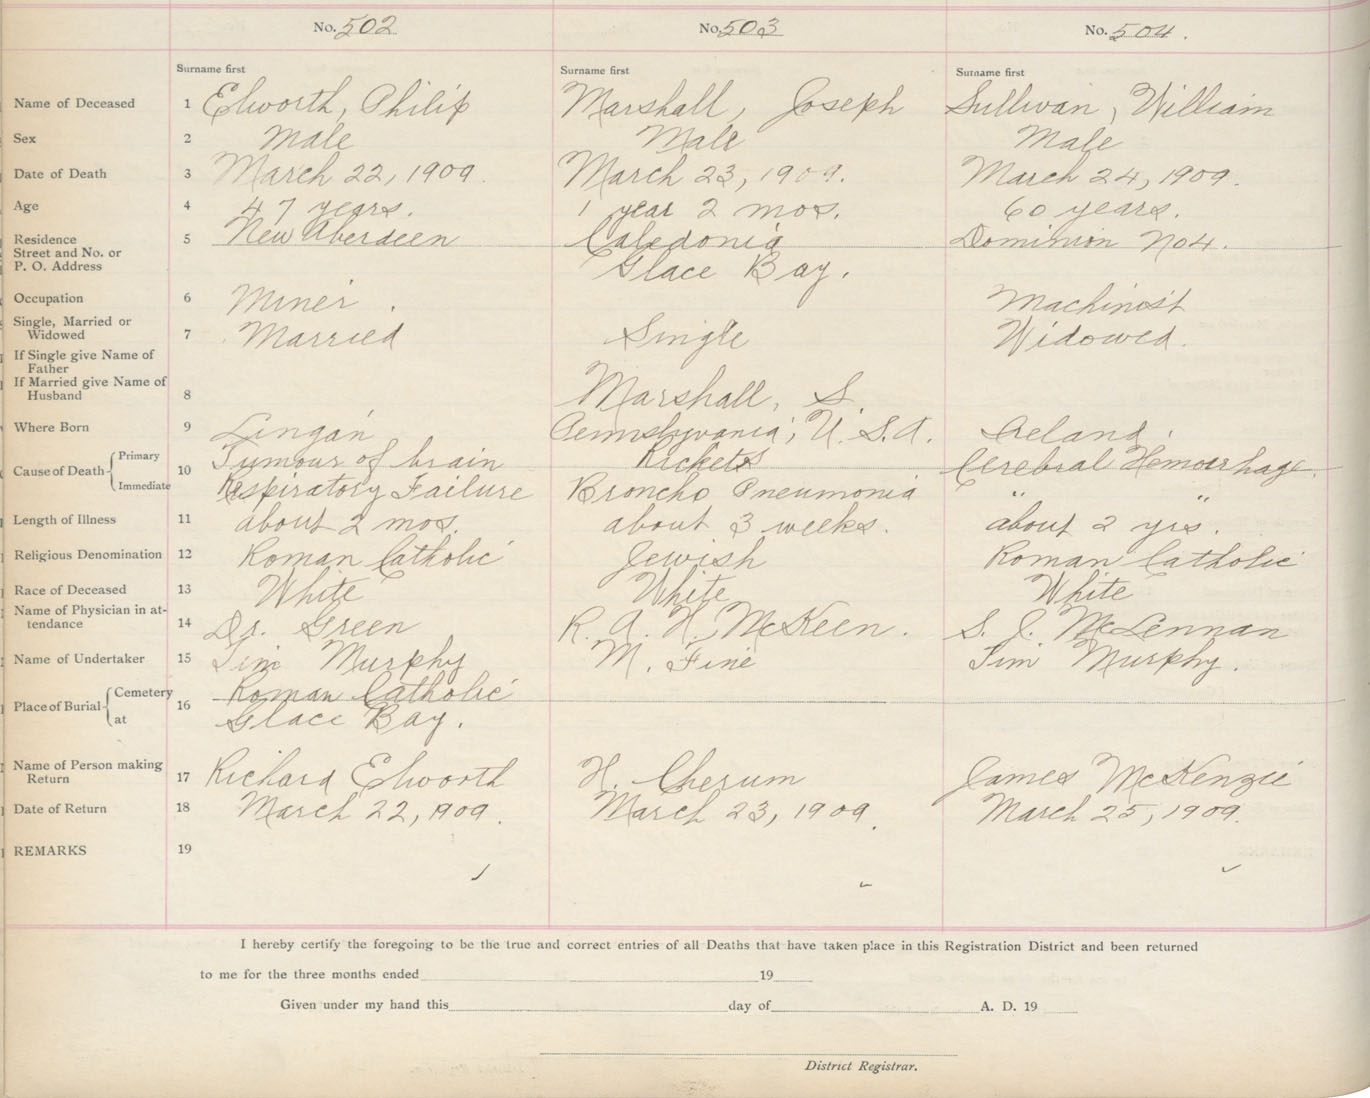 No. 502 No. 503 No. 504.
Surname first Surname first Surname first
Name of Deceased 1 Elworth, Philip Marshall, Joseph Sullivan, William
Sex 2 Male Male Male
Date of Death 3 March 22, 1909. March 23, 1909. March 24, 1909.
Age 4 47 years. 1 year 2 mos. 60 years.
Residence 5 New Aberdeen Caledonia Dominion No 4.
Street and No. or
P. O. Address Glace Bay.
Occupation 6 Miner. Machinist
Single, Married or
Widowed 7 Married Single Widowed.
If Single give Name of
Father
If Married give Name of
Husband 8 Marshall, S
Where Born 9 Lingan Pennsylvania, U. S. A. Ireland.
Cause of Death Primary 10 Tumour of brain Rickets Cerebral Hemorrhage
Immediate Respiratory Failure Broncho Pneumonia " "
Length of Illness 11 about 2 mos. about 3 weeks. about 2 yrs.
Religious Denomination 12 Roman Catholic Jewish Roman Catholic
Race of Deceased 13 White White White
Name of Physician in at-
tendance 14 Dr. Green R. A. H. McKeen. S. J. McLennan
Name of Undertaker 15 Jim Murphy M. Fine Jim Murphy.
Place of Burial Cemetery 16 Roman Catholic
at Glace Bay.
Name of Person making
Return 17 Richard Elworth H. Cherum James McKenzie
Date of Return 18 March 22, 1909. March 23, 1909. March 25, 1909.
REMARKS 19
I hereby certify the foregoing to be the true and correct entries of all Deaths that have taken place in this Registration District and been returned
to me for the three months ended 19
Given under my hand this day of A. D. 19
District Registrar.